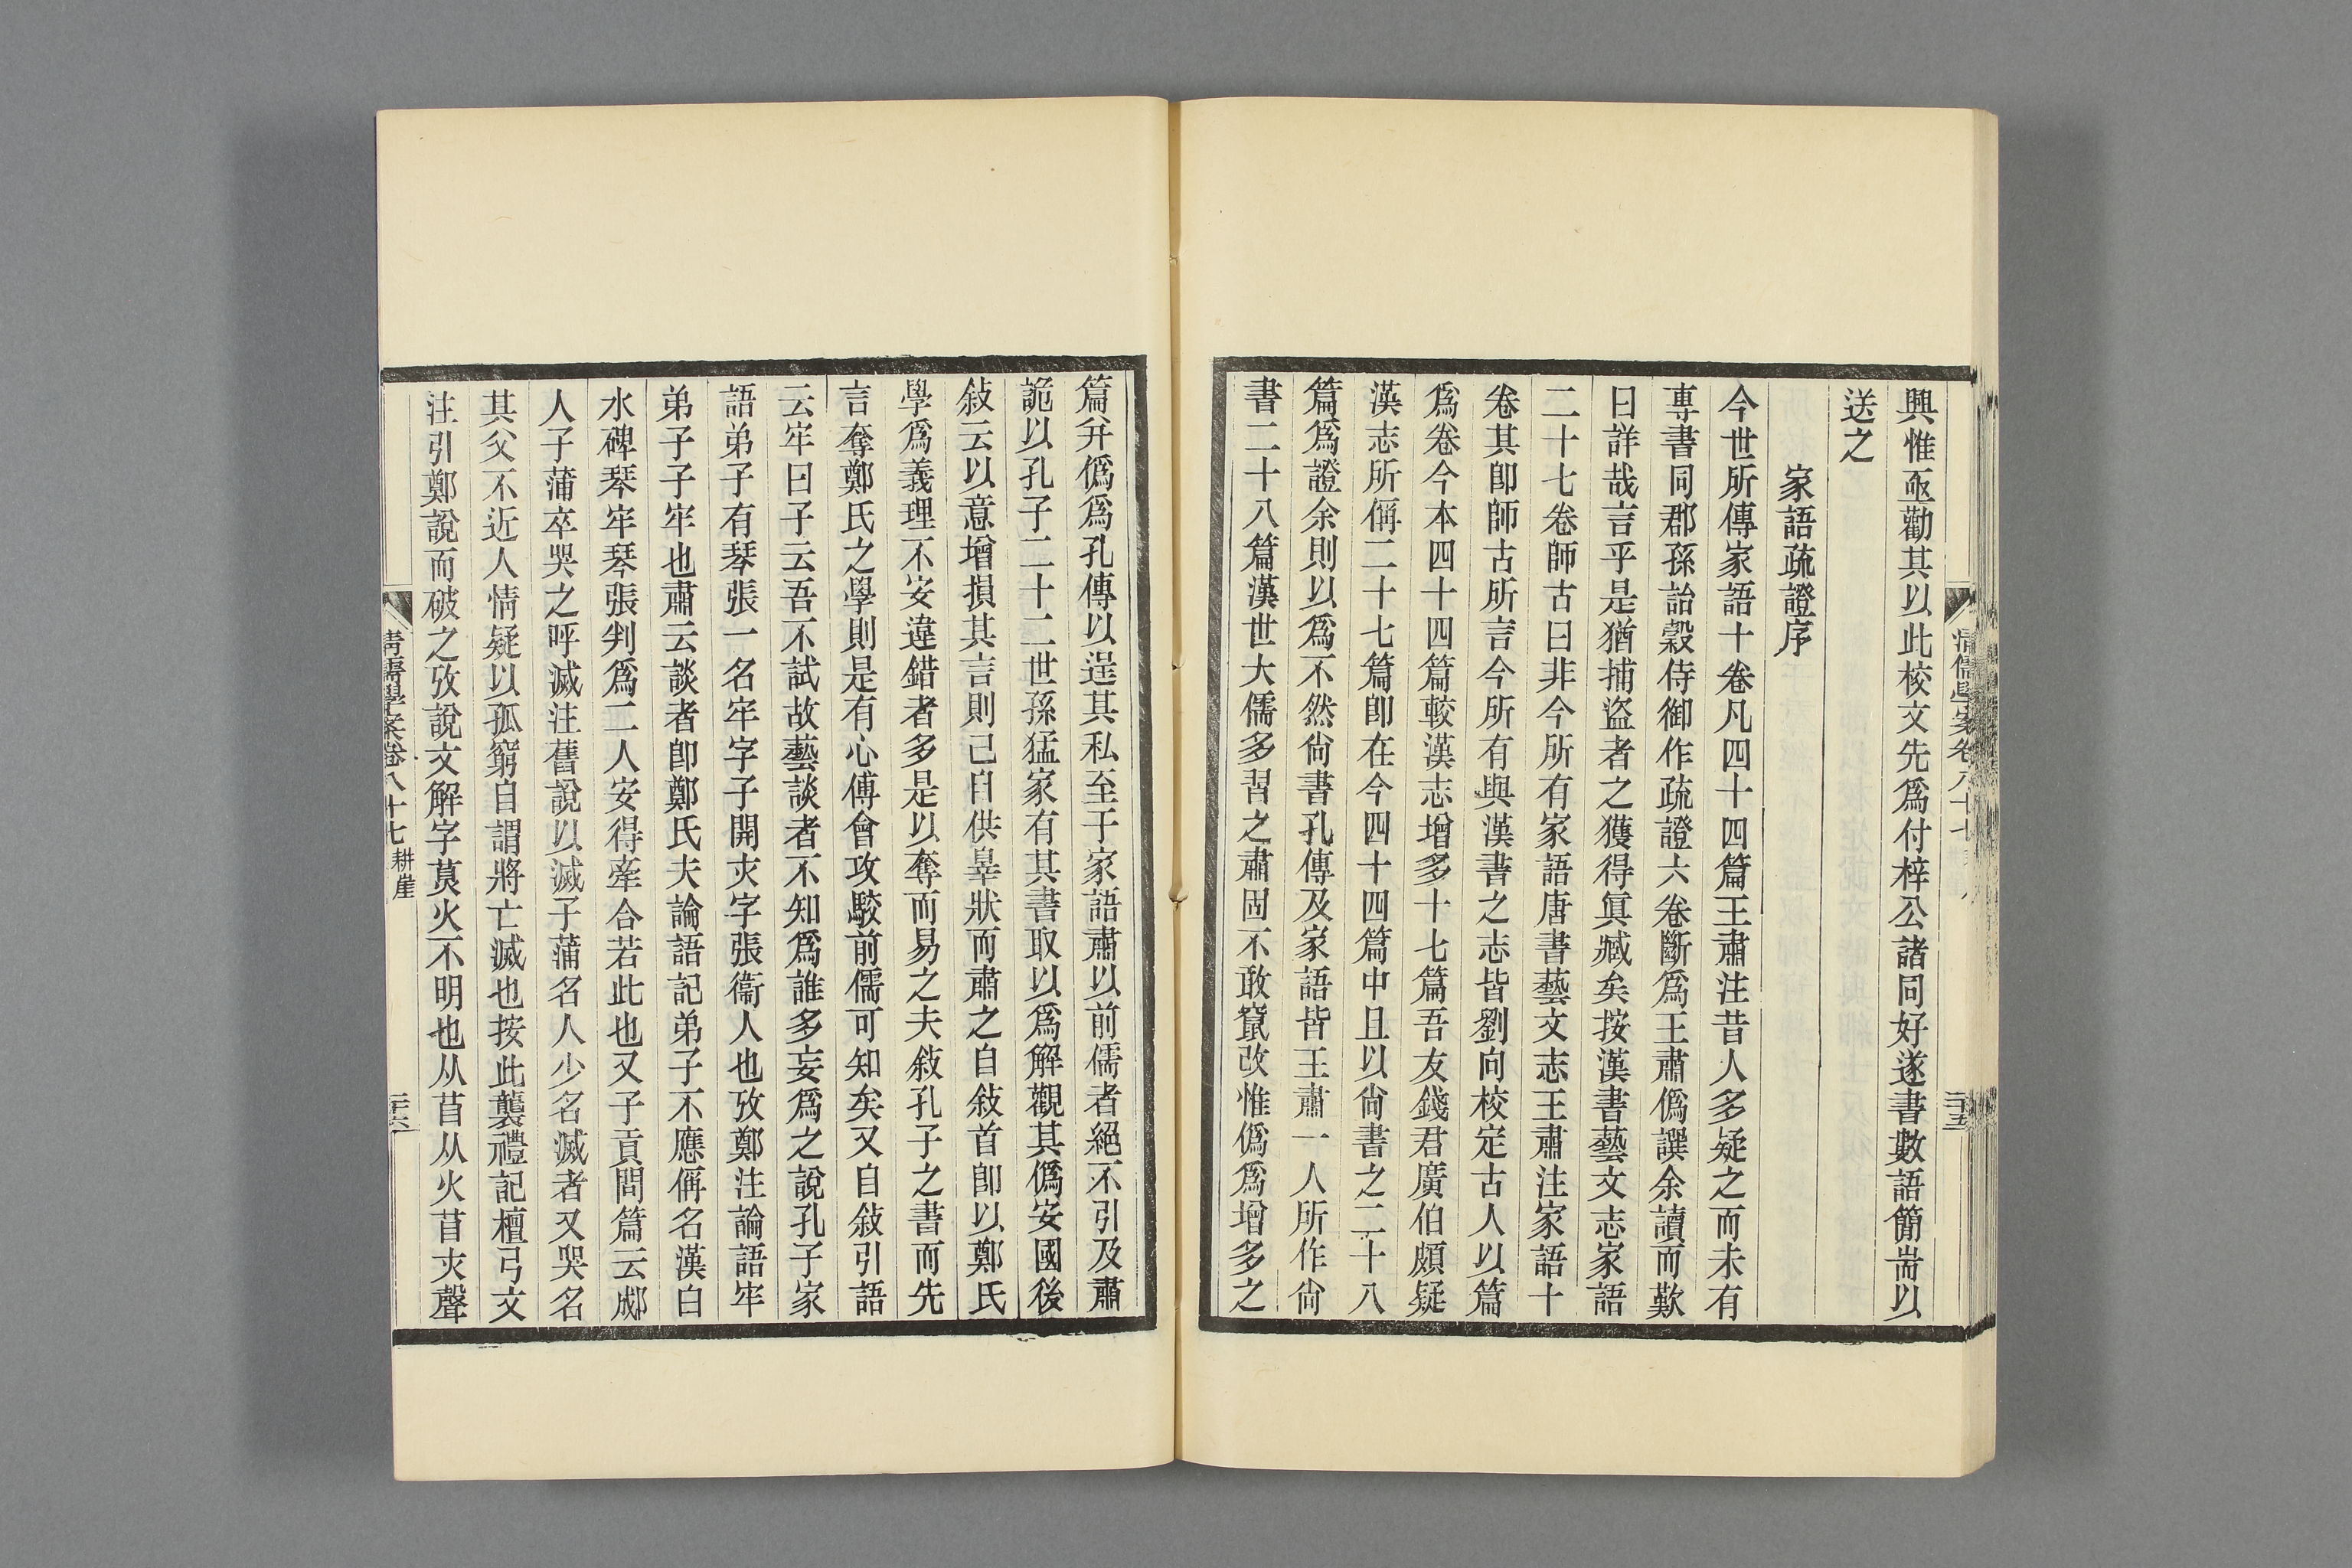 興惟亟勸其以此校文先爲付梓公諸同好遂書數語簡耑以
送之
家語疏證序
今世所傳家語十卷凡四十四篇王肅注昔人多疑之而未有
專書同郡孫詒穀侍御作疏證六卷斷爲王肅僞譔余讀而歎
曰詳哉言乎是猶捕盜者之獲得眞臧矣按漢書藝文志家語
二十七卷師古曰非今所有家語唐書藝文志王肅注家語十
卷其卽師古所言今所有與漢書之志皆劉向校定古人以篇
爲卷今本四十四篇較漢志增多十七篇吾友錢君廣伯頗疑
漢志所偁二十七篇卽在今四十四篇中且以尙書之二十八
篇爲證余則以爲不然尙書孔傳及家語皆王肅一人所作尙
書二十八篇漢世大儒多習之肅固不敢竄改惟僞爲增多之
篇并僞爲孔傳以逞其私至于家語肅以前儒者絕不引及肅
詭以孔子二十二世孫猛家有其書取以爲解觀其僞安國後
敍云以意增損其言則己自供辠狀而肅之自敍首卽以鄭氏
學爲義理不安違錯者多是以奪而易之夫敍孔子之書而先
言奪鄭氏之學則是有心傅會攻駮前儒可知矣又自敍引語
云牢曰子云吾不試故藝談者不知爲誰多妄爲之說孔子家
語弟子有琴張一名牢字子開亦字張衞人也攷鄭注論語牢
弟子子牢也肅云談者卽鄭氏夫論語記弟子不應偁名漢白
水碑琴牢琴張判爲二人安得牽合若此也又子貢問篇云郕
人子蒲卒哭之呼滅注舊說以滅子蒲名人少名滅者又哭名
其父不近人情疑以孤窮自謂將亡滅也按此襲禮記檀弓文
注引鄭說而破之攷說文解字莫火不明也从苜从火苜亦聲
清儒學案卷八十七
二十五
清儒學案卷八十七 耕崖
二十六